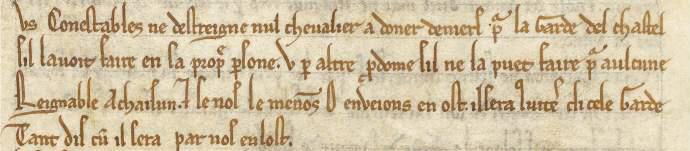 us Conestables ne destreigne nul chevalier a doner deniers pͬ la Garde del chastel
sil lavoit faire en sa propͬ psone. U p altre pdome sil ne la puet faire pͬ aulcune
Reignable Achaisun. ⁊ se nos le menōs O enveions en ost. il sera quites di cele Garde
Tant dis cū il sera par nos en lost.